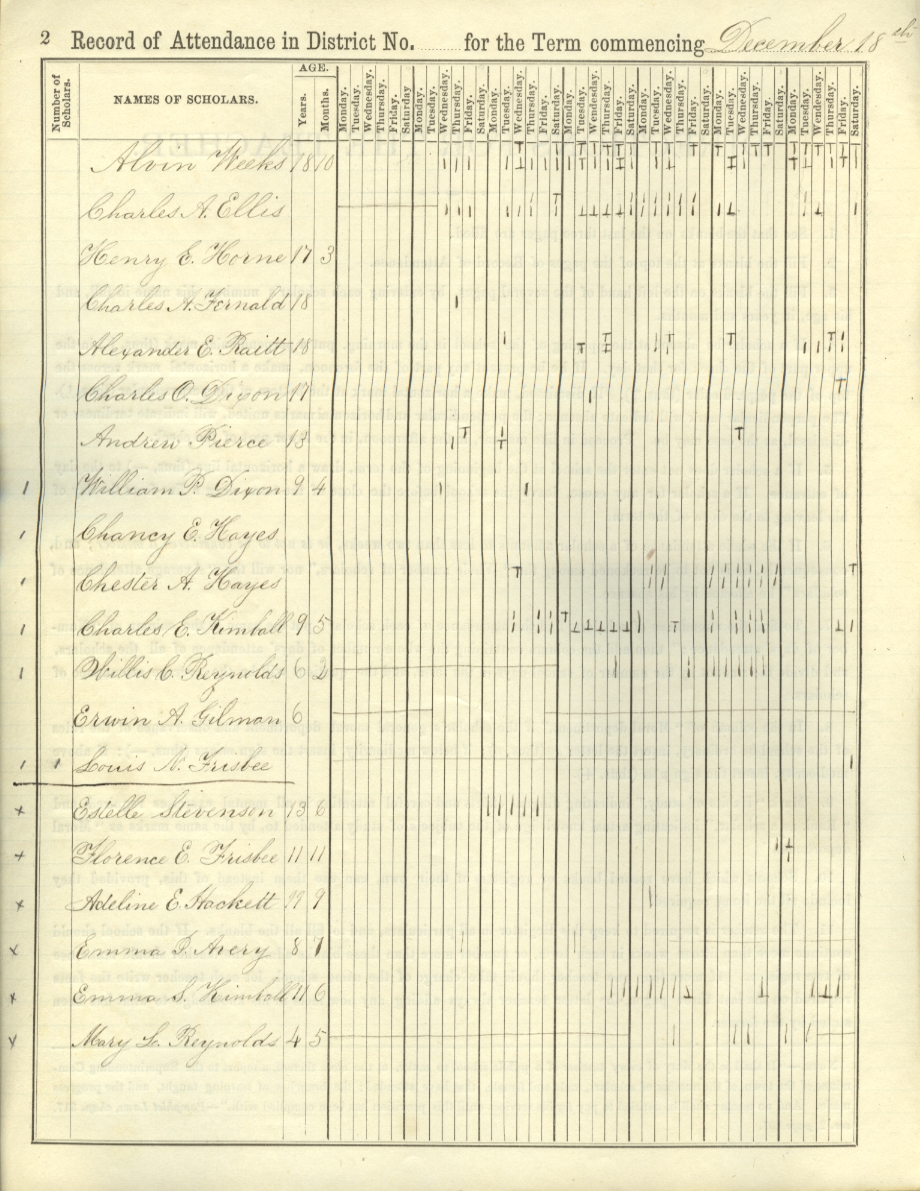 2 Record of Attendance in District No. ........ for the Term commencing December 18th
Number of Scholars. NAMES OF SCHOLARS. AGE. Years. Months. Monday. Tuesday. Wednesday. Thursday. Friday. Saturday Monday. Tuesday. Wednesday. Thursday. Friday. Saturday Monday. Tuesday. Wednesday. Thursday. Friday. Saturday. Monday. Tuesday. Wednesday. Thursday. Friday. Saturday. Monday. Tuesday. Wednesday. Thursday. Friday. Saturday. Monday. Tuesday. Wednesday. Thursday. Friday. Saturday. Monday. Tuesday. Wednesday. Thursday. Friday. Saturday.
Alvin Weeks 18 10
Charles A. Ellis
Henry E. Horne 17 3
Charles A. Fernald 18
Alexander E. Raitt 18
Charles O. Dixon 17
Andrew Pierce 13
William P. Dixon 9 4
Chancy E. Hayes
Chester A. Hayes
Charles E. Kimball 9 5
Willis C. Reynolds 6 2
Erwin A. Gilman 6
Louis N. Frisbee
Estelle Stevenson 13 6
Florence E. Frisbee 11 11
Adeline E. Hackett 9
Emma Avery 8
Emma S. Kimball 11 6
Mary L. Reynolds 4 5